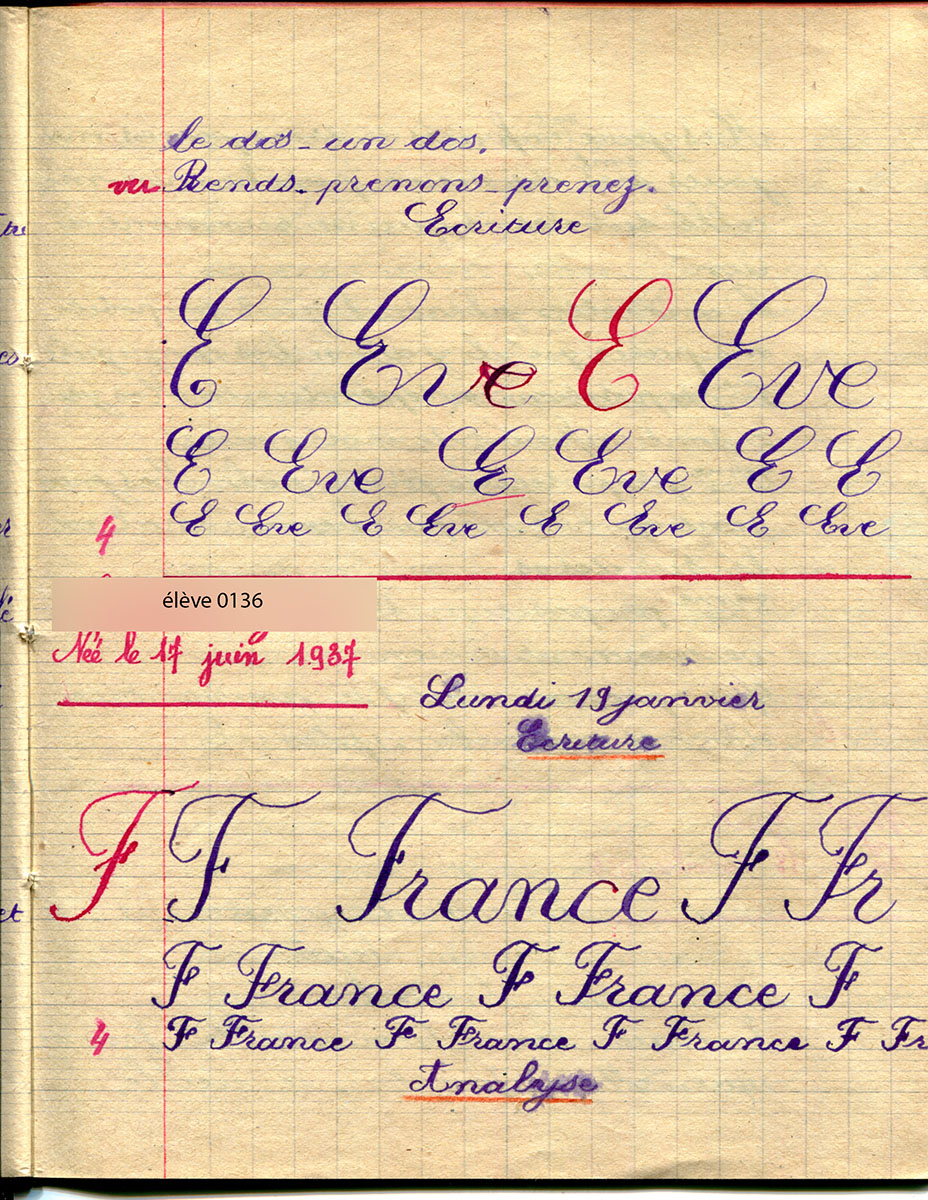 le dos - un dos.
vu Prends - prenons - prenez.
Ecriture
E Eve E Eve
E Eve E Eve E E
4 E Eve E Eve E Eve E Eve
élève 0136
Née le 17 juin 1937
Lundi 19 janvier
Ecriture
F F France F Fr
F France F France F
4 F France F France F France F Fr
Analyse